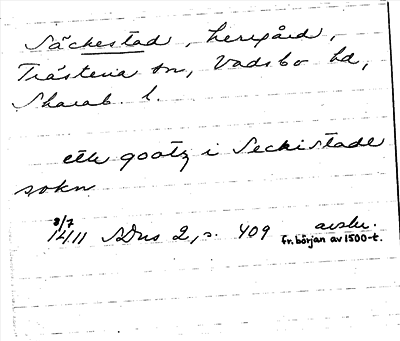 Säckestad, herrgård,
Trästena sn, Vadsbo hd,
Skarab. l.
ett gootz i Seckistade
sokn
8/7
1411 SDns 2, s. 409 avskr.
fr. början av 1500-t.